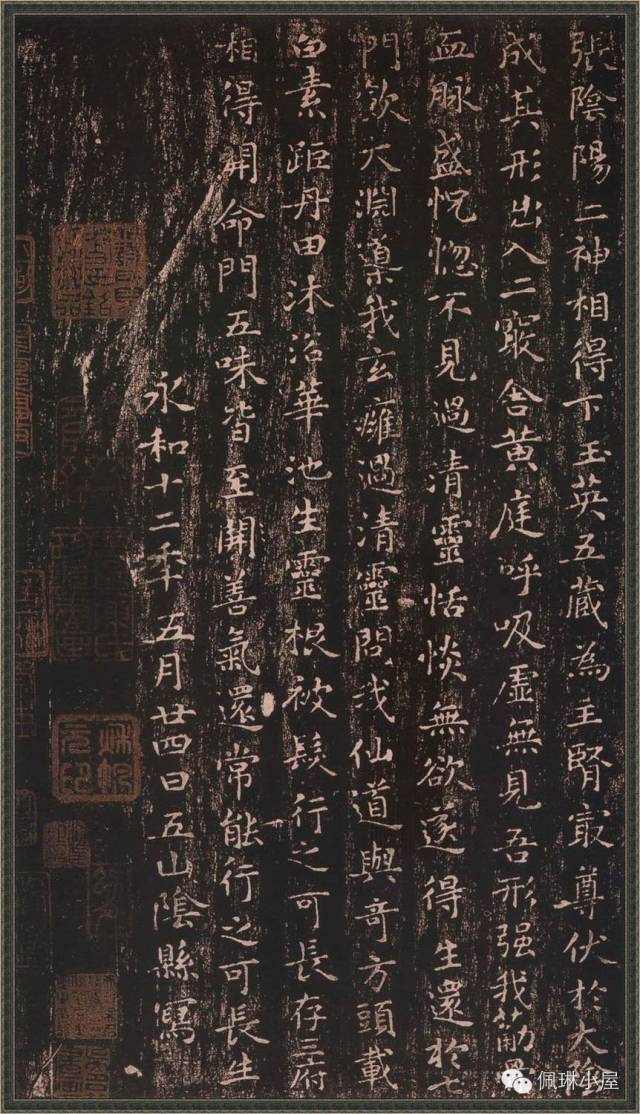 張陰陽二神相得下玉英五藏為主腎冣尊伏於大陰
成其形出入二竅舍黃庭呼吸虛無見吾形强我筋骨
血脉盛恍惚不見過清靈恬惔無欲遂得生還於七
門飲大淵導我玄癰過清靈問我仙道與奇方頭載
白素距丹田沐浴華池生靈根被髮行之可長存三府
相得開命門五味皆至開善氣還常能行之可長生
永和十二年五月廿四日五山陰縣寫
佩琳小屋